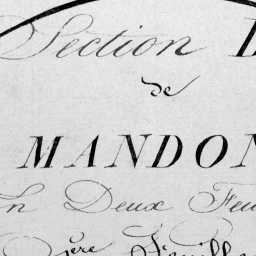 Section D
de
MANDON
En Deux Feu
2ère Feuille